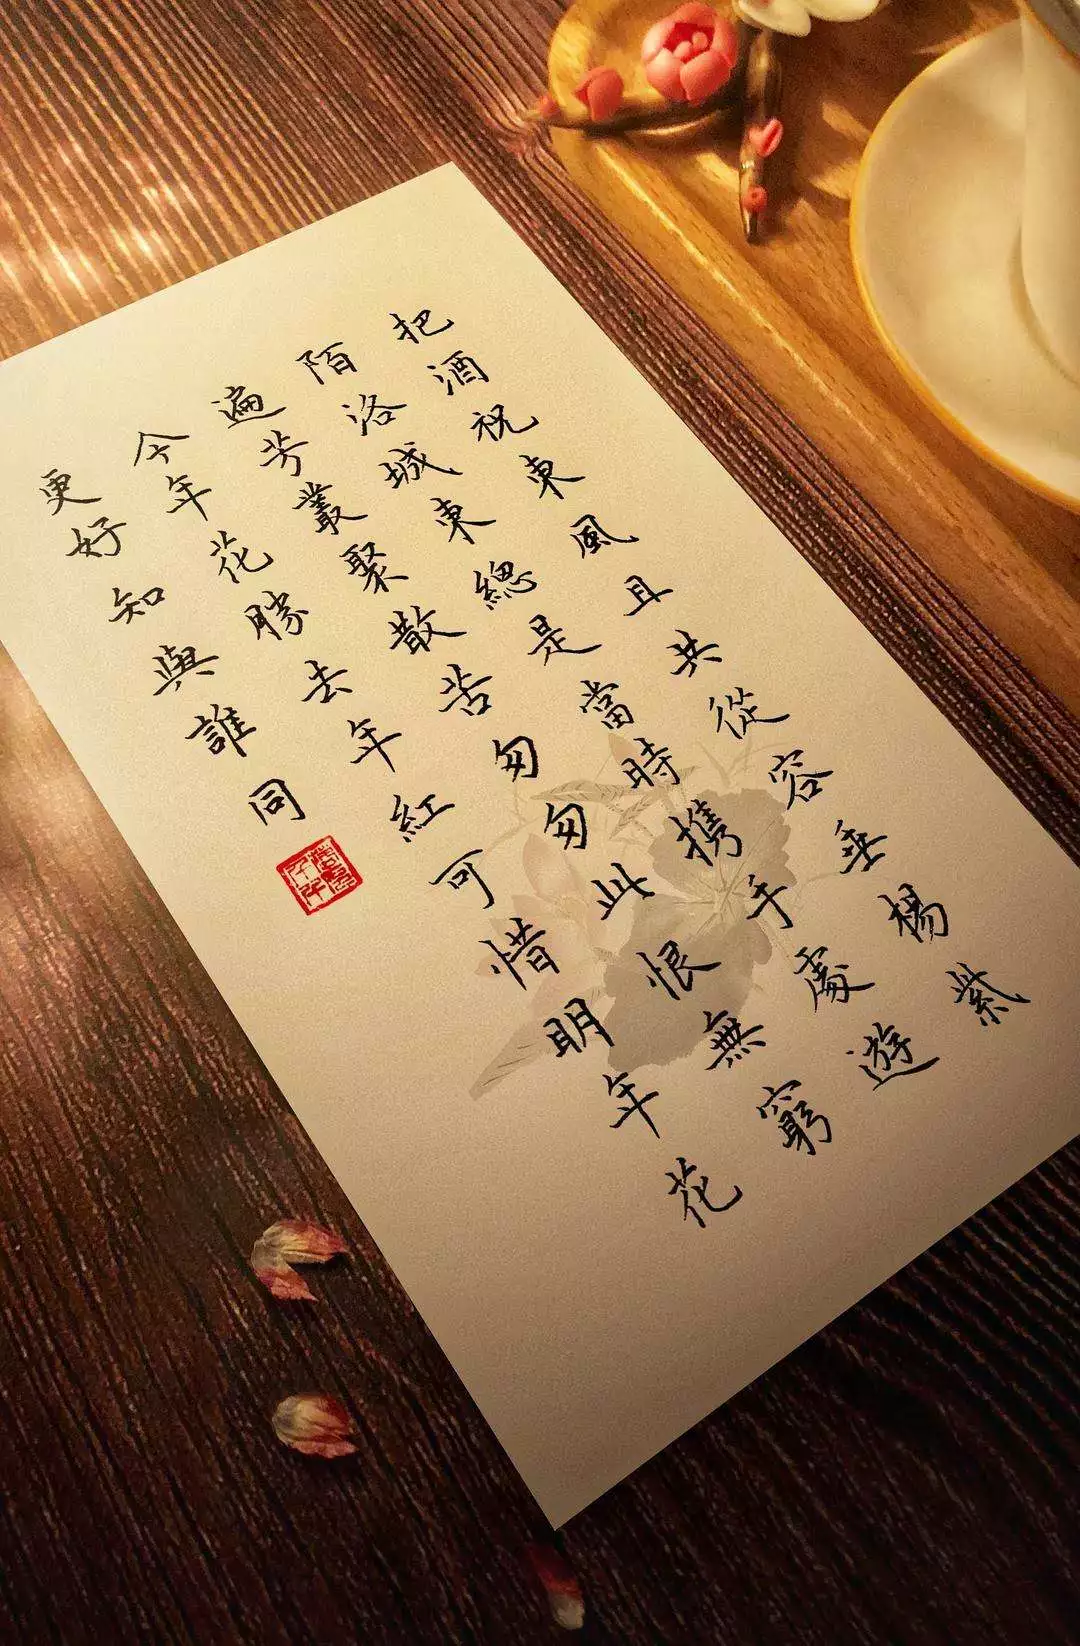 把酒祝東風且共從容垂楊紫
陌洛城東總是當時携手處遊
遍芳叢聚散苦匆匆此恨無窮
今年花勝去年紅可惜明年花
更好知與誰同